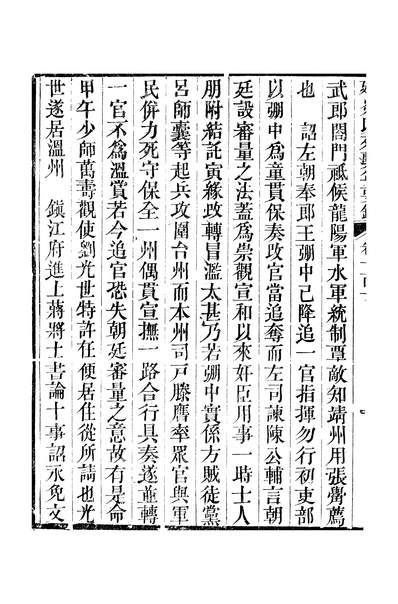 武郎閤門祗候龍陽軍水軍統制覃敵知靖州用張觷薦
也　詔左朝奉郎王弸中已降追一官指揮勿行初吏部
以弸中為童貫保奏改官當追奪而左司諫陳公輔言朝
廷設審量之法蓋為崇觀宣和以來奸臣用事一時士人
朋附結託寅緣改轉冒濫太甚乃若弸中實係方賊徒黨
呂師囊等起兵攻圍台州而本州司戸滕膺率眾官與軍
民併力死守保全一州偶貫宣撫一路合行具奏遂並轉
一官不為濫賞若今追官恐失朝廷審量之意故有是命
甲午少師萬壽觀使劉光世特許任便居住從所請也光
世遂居溫州　鎮江府進士蔣將士書論十事詔永免文